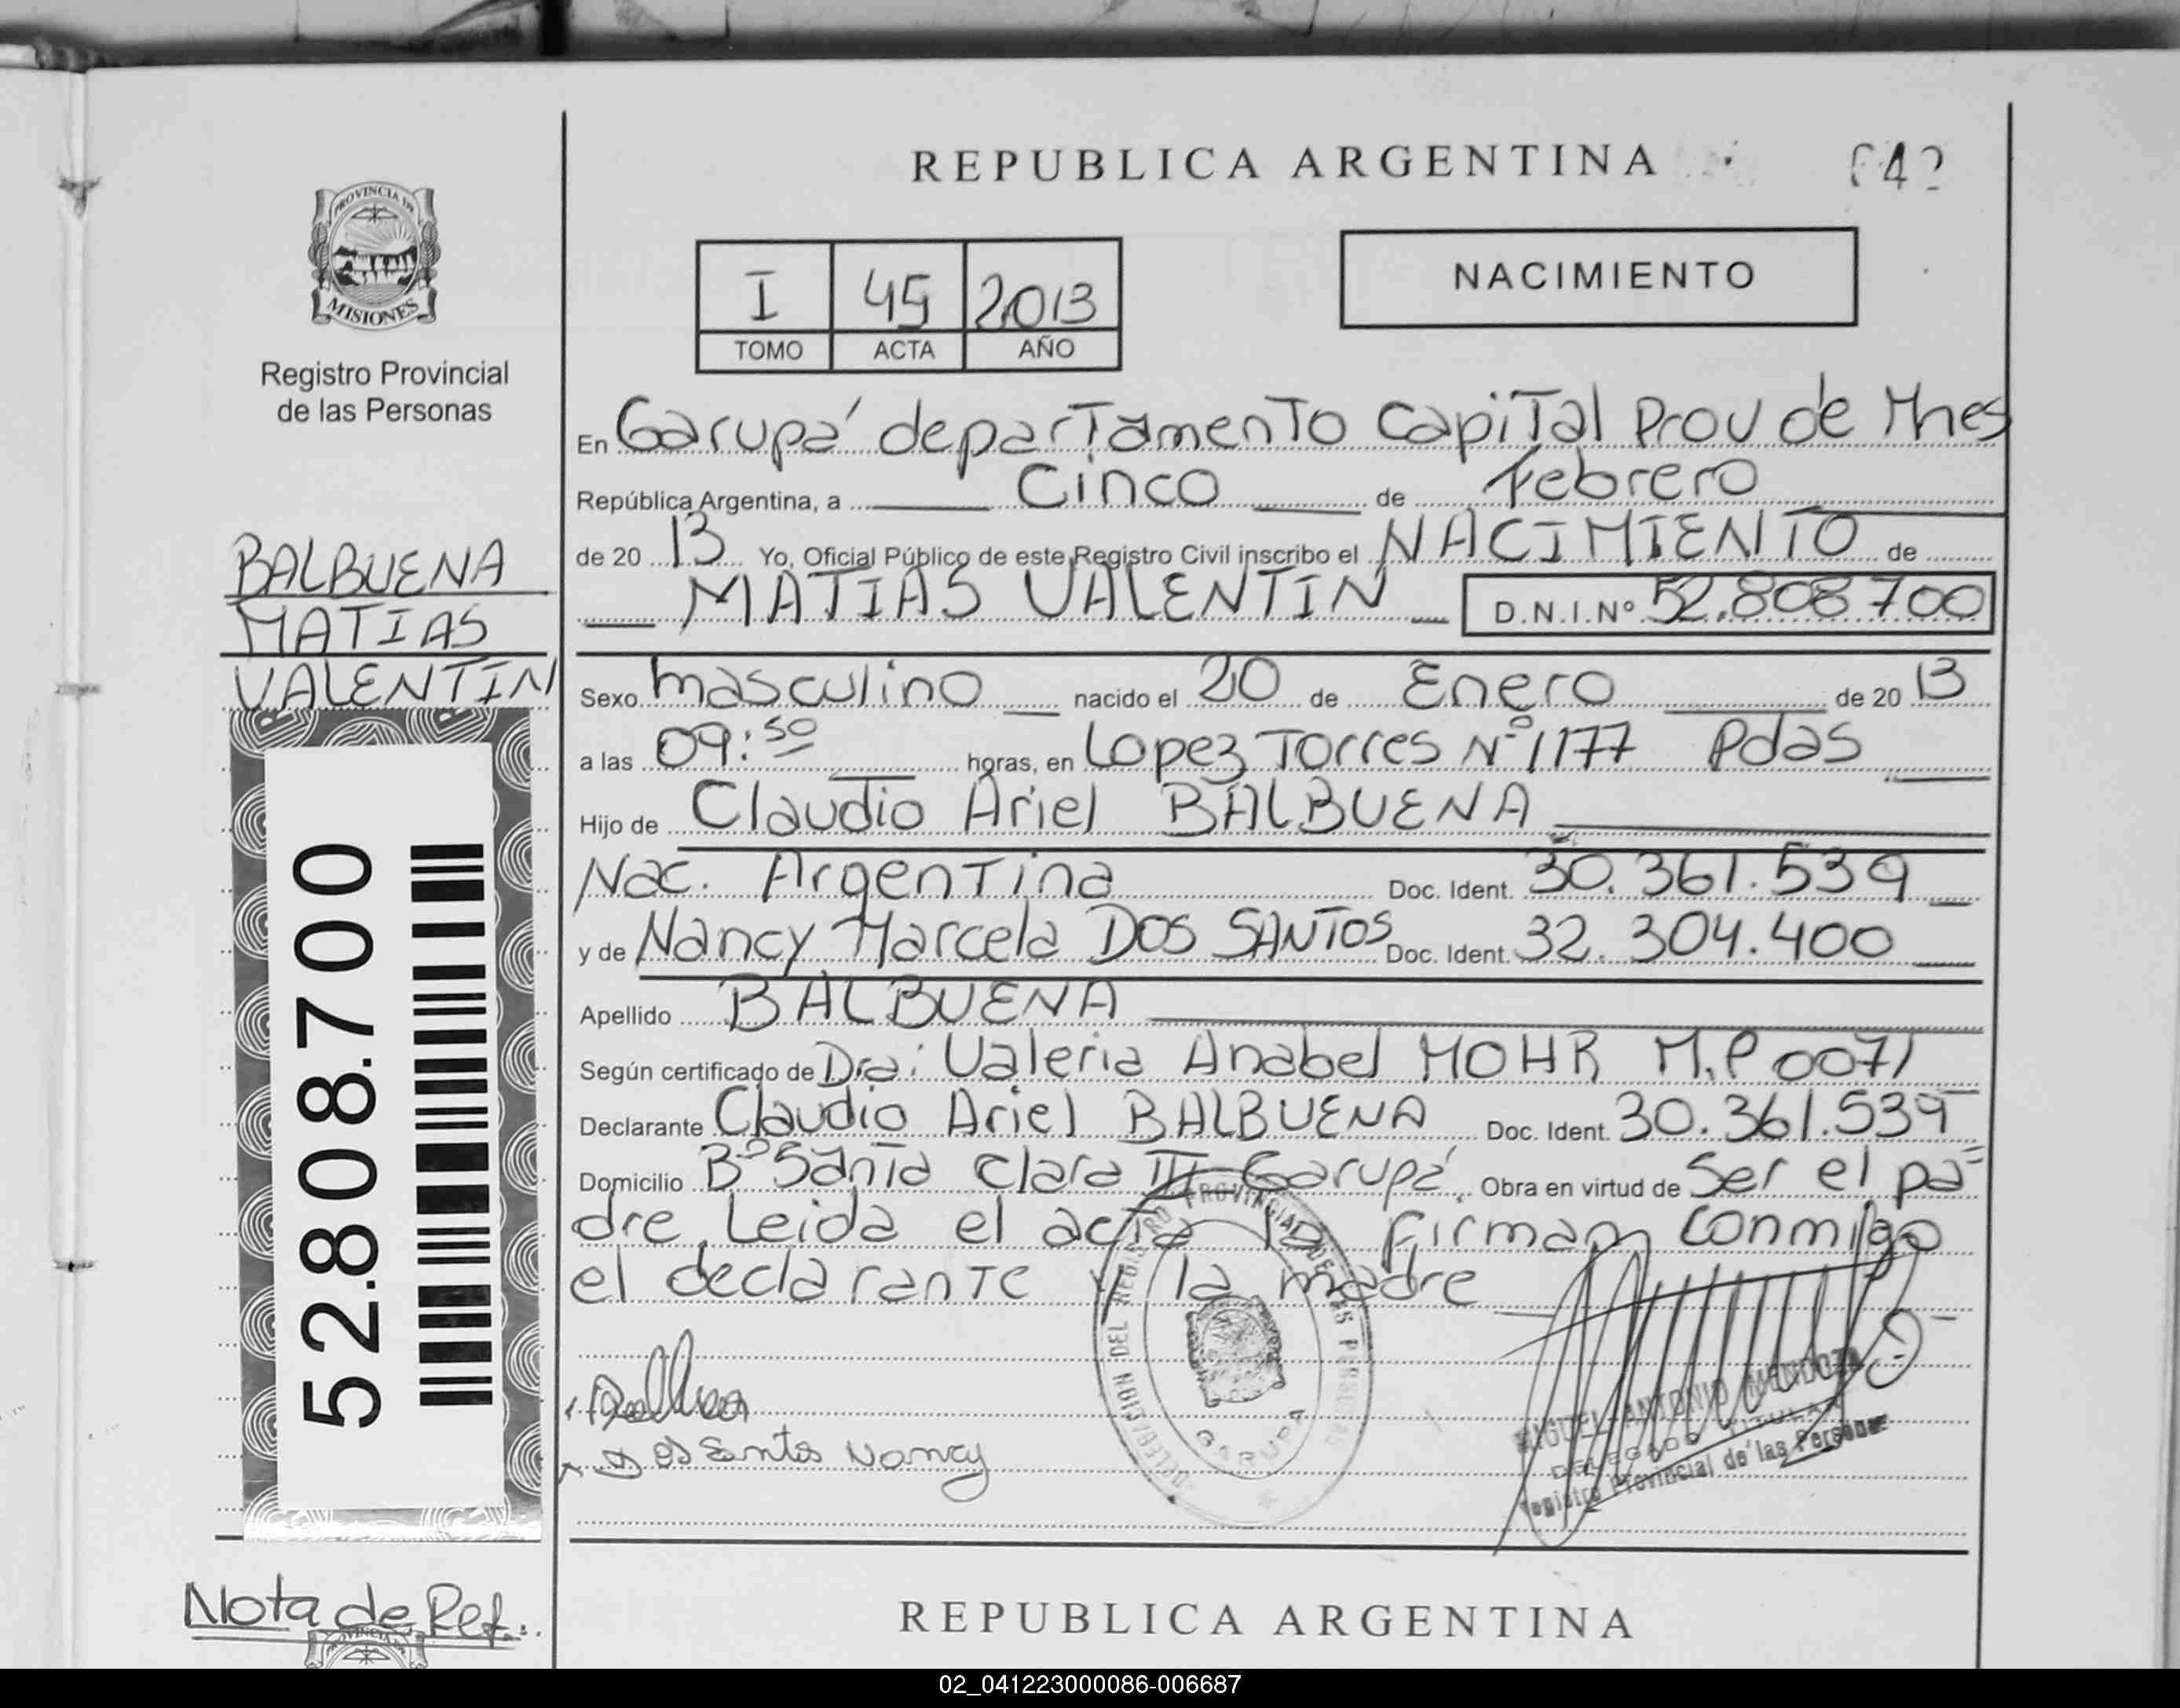 REPUBLICA ARGENTINA
PROVINCIA DE
MISIONES
Registro Provincial
de las Personas
NACIMIENTO
I 45 2013
TOMO ACTA AÑO
En Garupá departamento Capital Prov de Mnes
República Argentina, a Cinco de Febrero
de 20 13 Yo, Oficial Público de este Registro Civil inscribo el NACIMIENTO de
MATIAS VALENTIN D.N.I.Nº 52.808.700
BALBUENA
MATIAS
VALENTIN
52.808.700
Sexo masculino nacido el 20 de Enero de 20 13
a las 09:50 horas, en Lopez Torres Nº 1177 Pdas
Hijo de Claudio Ariel BALBUENA
Nac. Argentina Doc. Ident. 30.361.539
y de Nancy Marcela DOS SANTOS Doc. Ident. 32.304.400
Apellido BALBUENA
Según certificado de Dra: Valeria Anabel MOHR M.P 0071
Declarante Claudio Ariel BALBUENA Doc. Ident. 30.361.539
Domicilio Bº Santa Clara III Garupá. Obra en virtud de Ser el pa=
dre. Leida el acta la firman conmigo
el declarante y la madre
DELEGACION DEL REGISTRO PROVINCIAL DE LAS PERSONAS
GARUPA
Dos Santos Nancy
MIGUEL ANTONIO MENDOZA
DELEGADO TITULAR
Registro Provincial de las Personas
Nota de Ref.:
REPUBLICA ARGENTINA
PROVINCIA DE
02_041223000086-006687